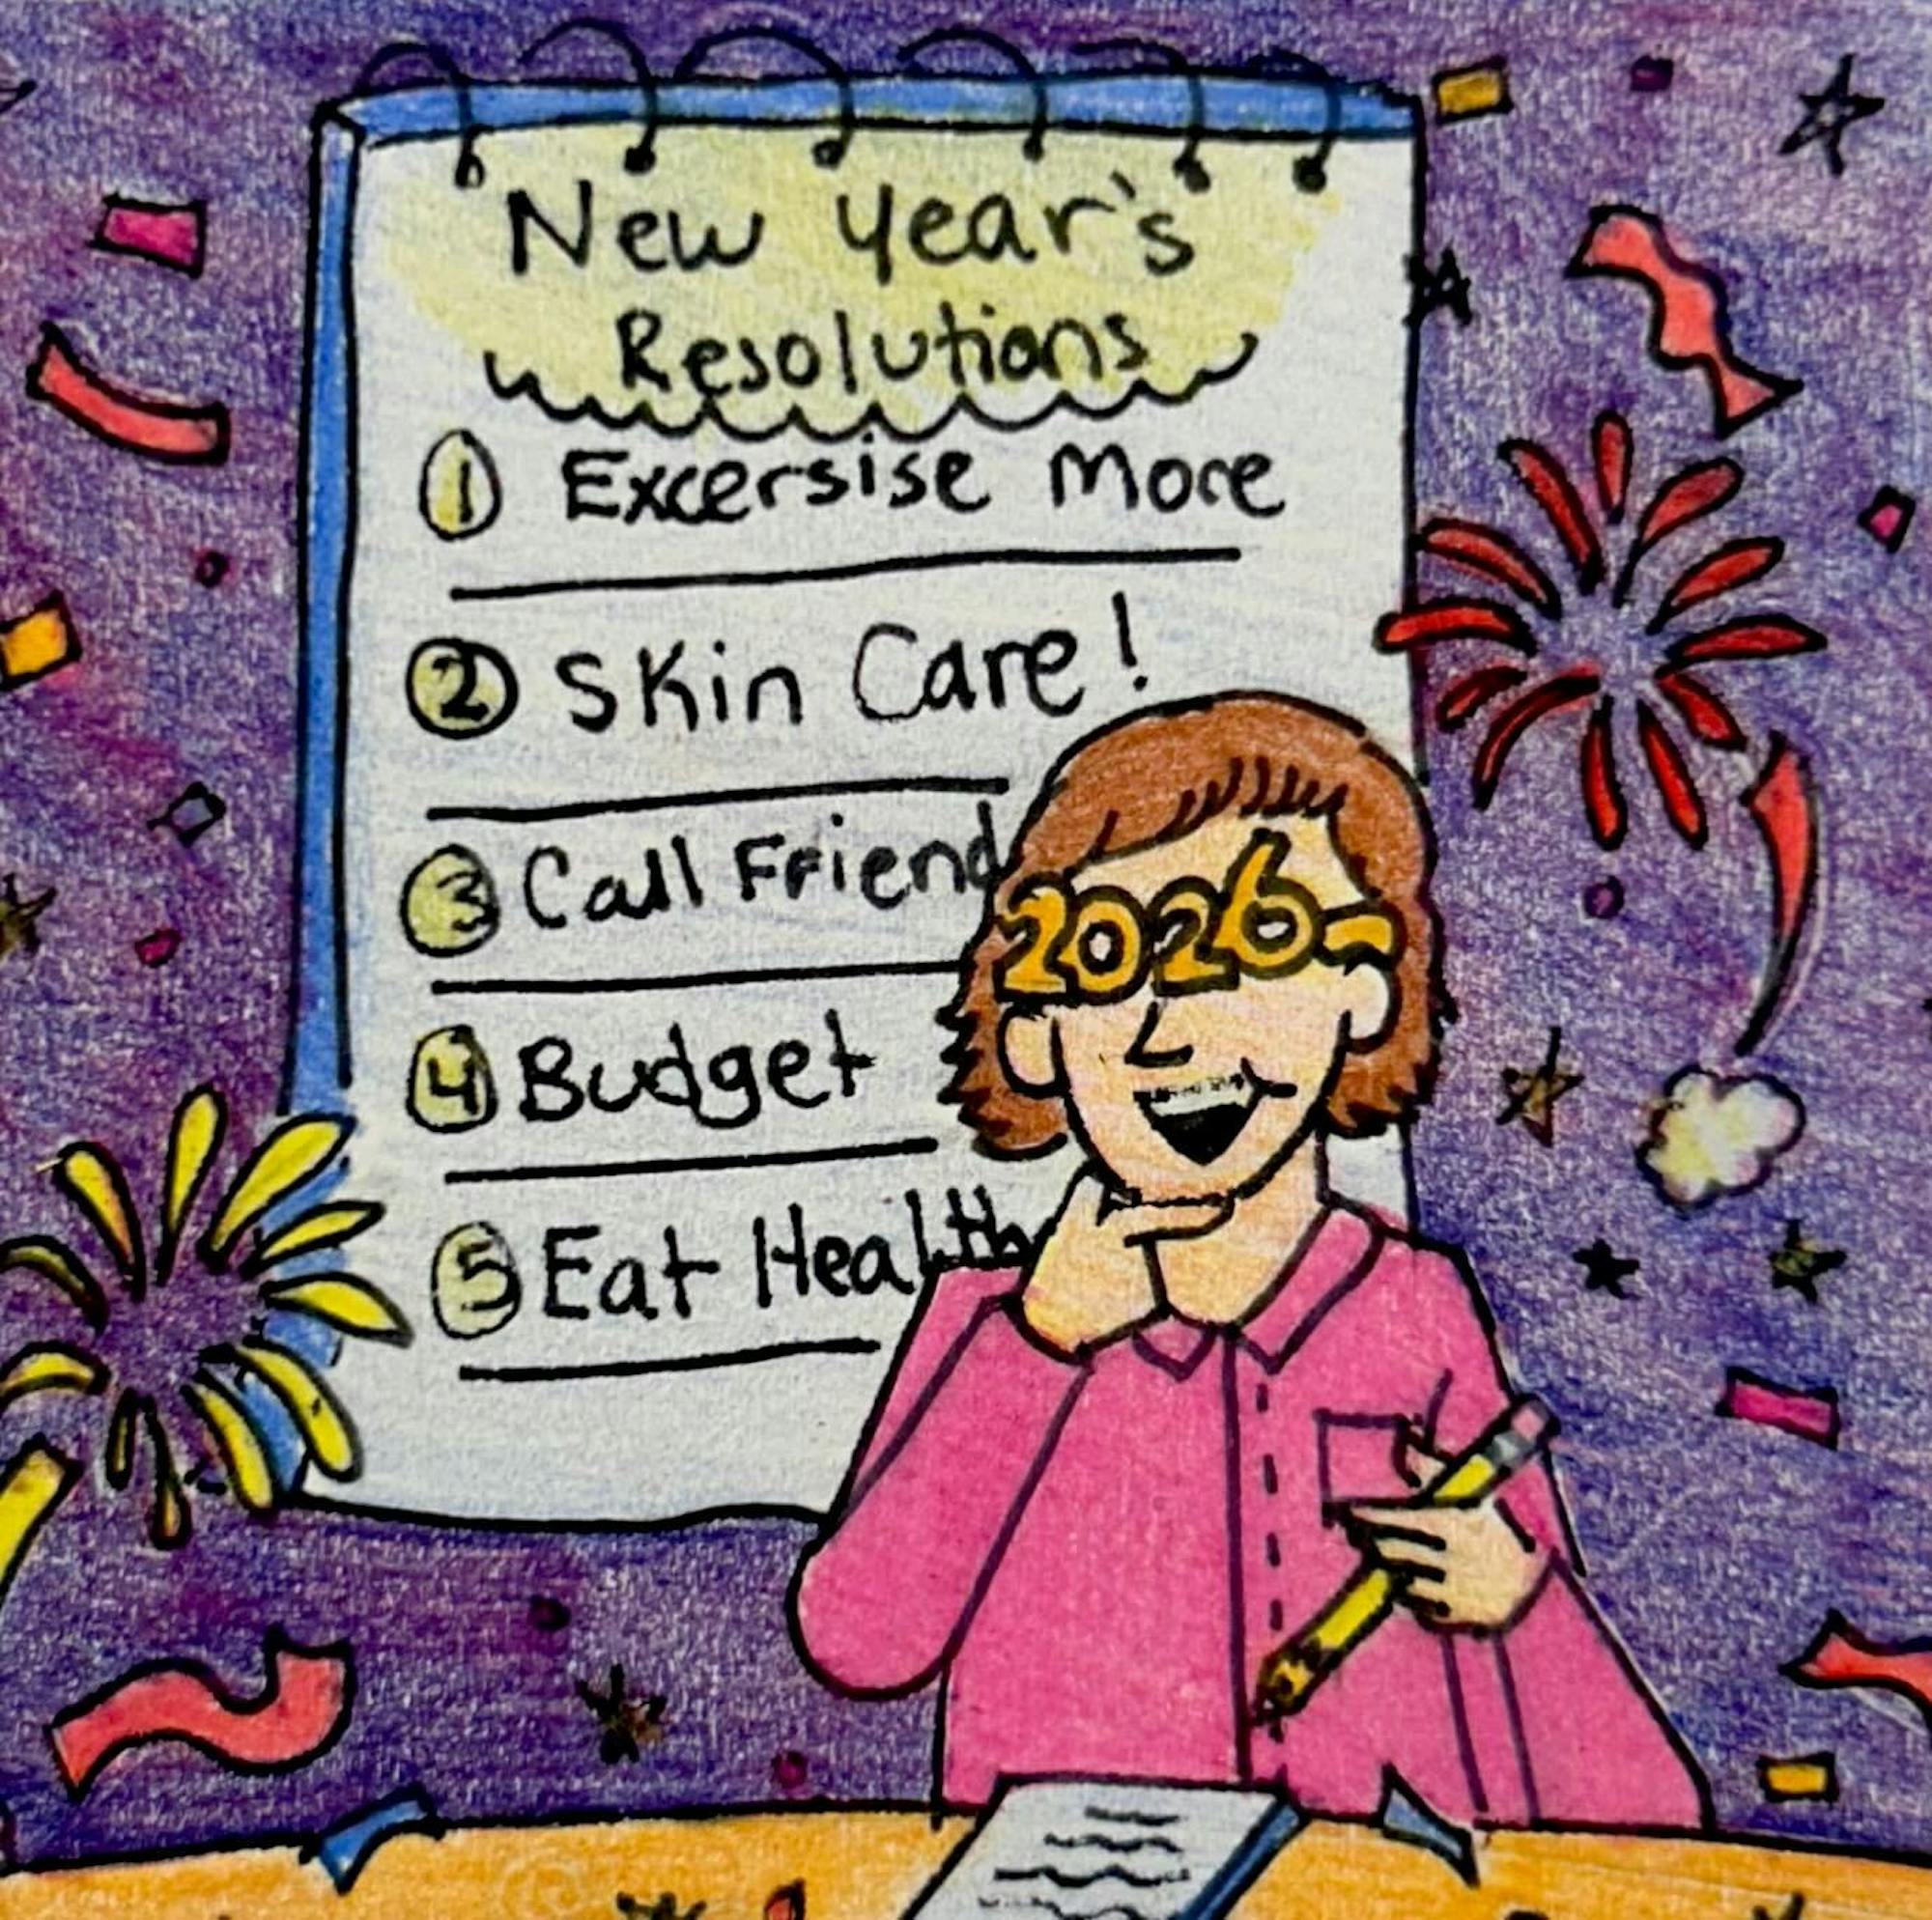 New Year's
Resolutions
1 Excersise More
2 Skin Care!
3 Call Friend
2026
4 Budget
5 Eat Health